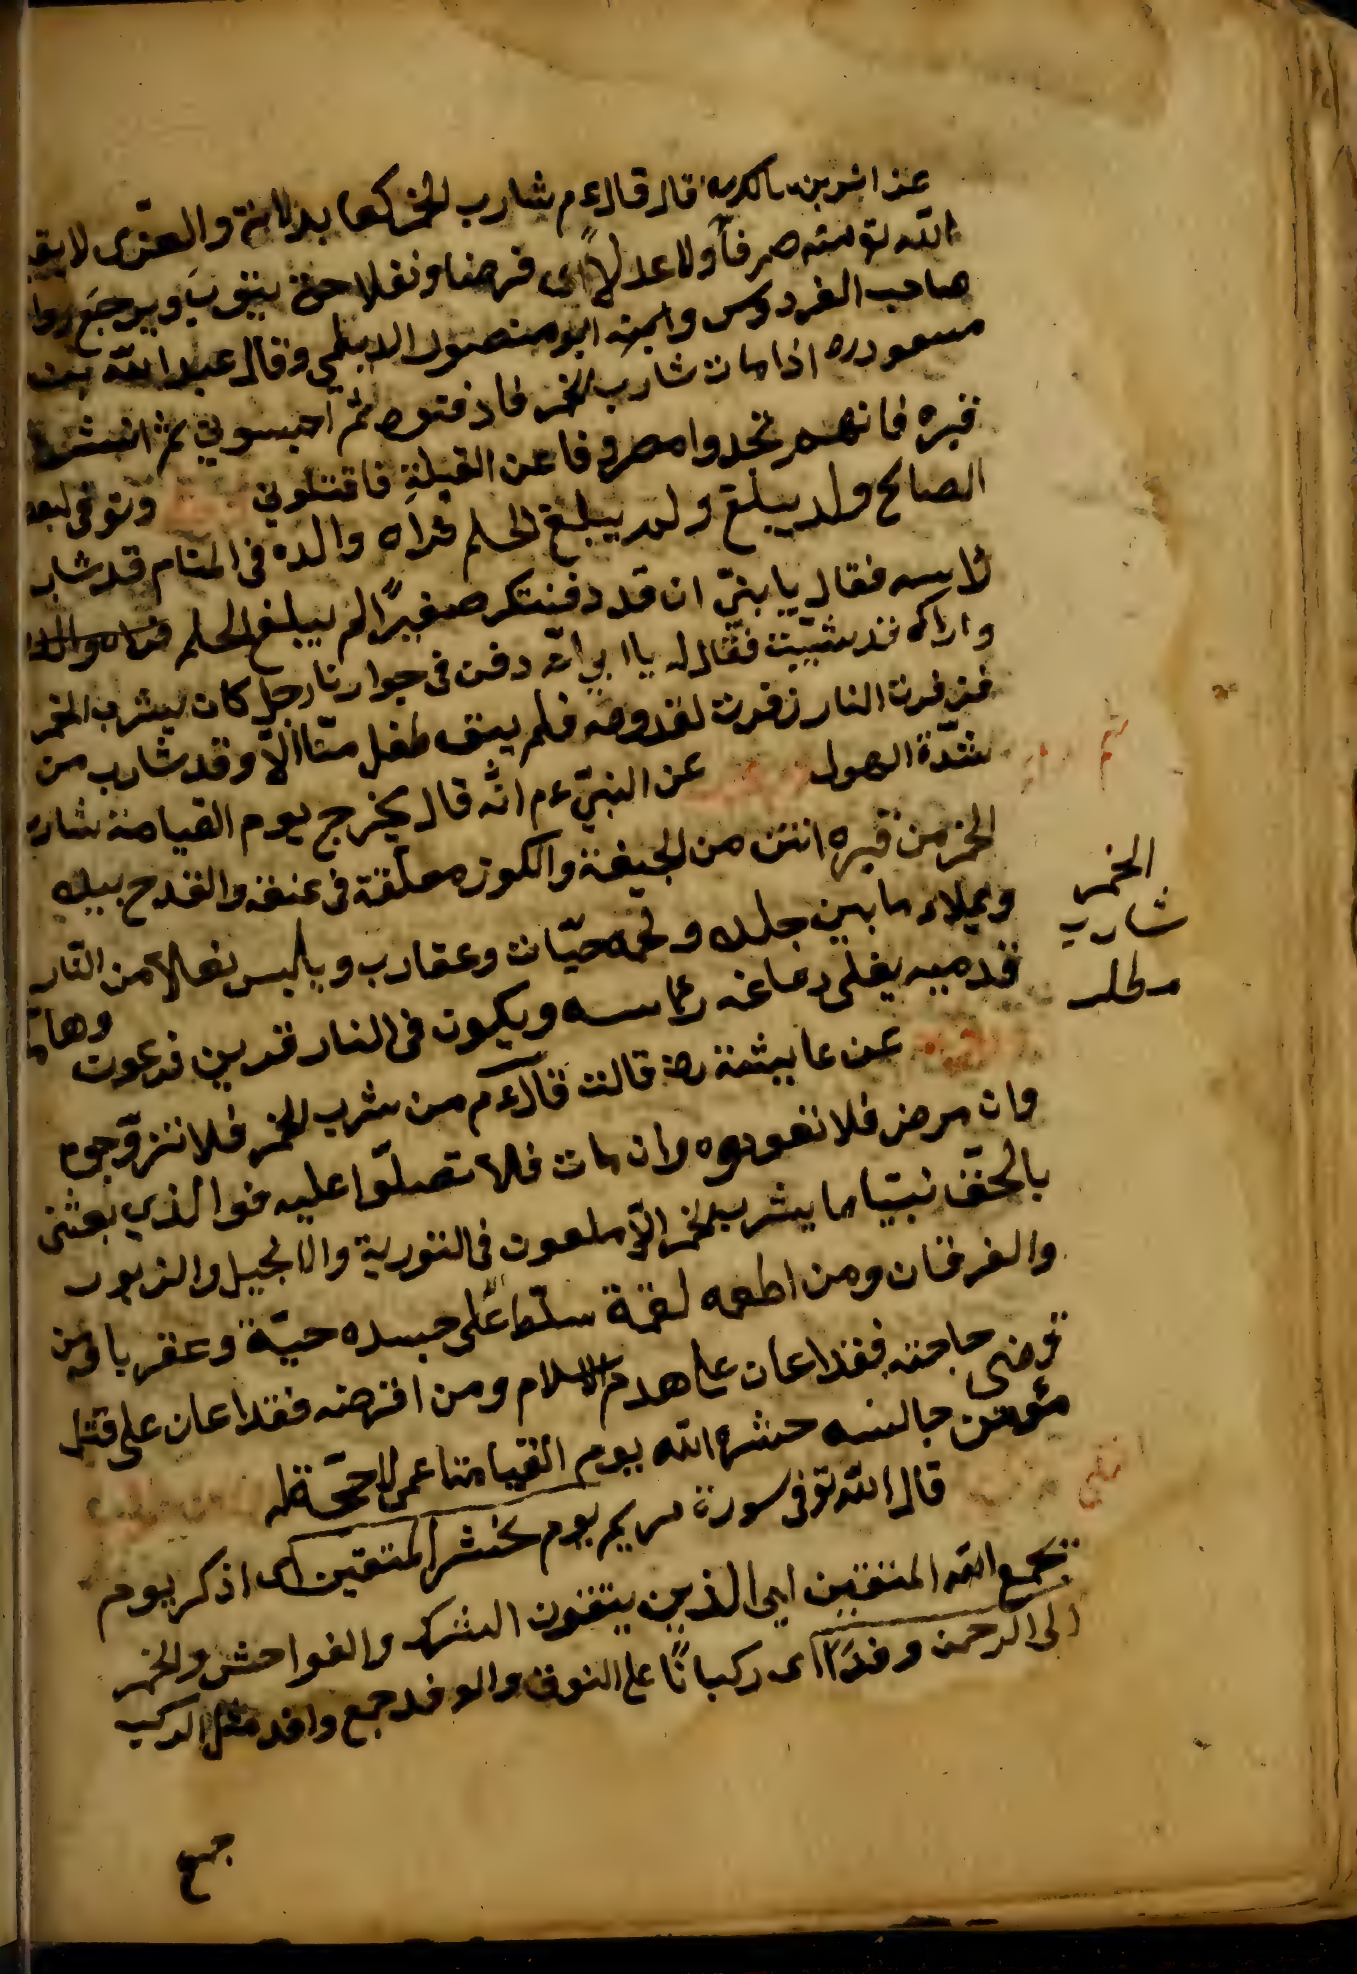 عن انس بن مالك رض قال قال ءم شارب الخمر كعابد اللات والعزّى لا يقبل
الله تع منه صرفاً ولا عدلاً اى فرضا ونفلا حتى يتوب ويرجع رواه
صاحب الفردوس وابنه ابو منصور الديلمي وقال عبد الله بن
مسعود رض اذا مات شارب الخمر فادفنوه ثم احبسوني ثم انبشوا
قبره فانهم تجدوا مصروفا عن القبلة فاقتلوني وتوفى لبعض
الصالح ولد يبلغ ولم يبلغ الحلم فراه والده فى المنام قد شاب
لاسه فقال يا بنيّ ان قد دفنتكر صغيرًا لم يبلغ الحلم فراه والده
واراك قد شيّبت فقال له يا ابي انّه دفن فى جوارنا رجل كان يشرب الخمر
فزفرت النار زفرت لقدومه فلم يبق طفل منّا الاّ وقد شاب من
شدّة الهول عن النبيّ ءم انّه قال يخرج يوم القيامة شارب
الخمر من قبره انتن من الجيفة والكوز معلّقة فى عنقه والقدح بيده
ويملاء ما بين جلده ولحمه حيّات وعقارب ويلبس نعلا من النّار
قدميه يغلى دماغه رأسه ويكون فى النار قرين فرعون وهامان
عن عايشة رض قالت قال ءم من شرب الخمر فلا تزوّجوه
وان مرض فلا تعودوه وان مات فلا تصلّوا عليه فوالذي بعثنى
بالحقّ نبيّا ما يشرب الخمر الاّ ملعون فى التورية والانجيل والزبور
والفرقان ومن اطعمه لقمة سلّط الله على جسده حيّة وعقربا ومن
قضى حاجته فقد اعان على هدم الاسلام ومن اقرضه فقد اعان على قتل
مؤمن جالسه حشره الله يوم القيامة اعمى لا حجّة له
قال الله تع فى سورة مريم يوم نحشر المتقين اى اذكر يوم
نجمع الله المتقين ايى الذين يتقون الشرك والفواحش والخمر
الى الرحمن وفدًا اى ركبانًا على النوق والوفد جمع وافد مثل الركب
جمع
الخمر
شارب
مطلب